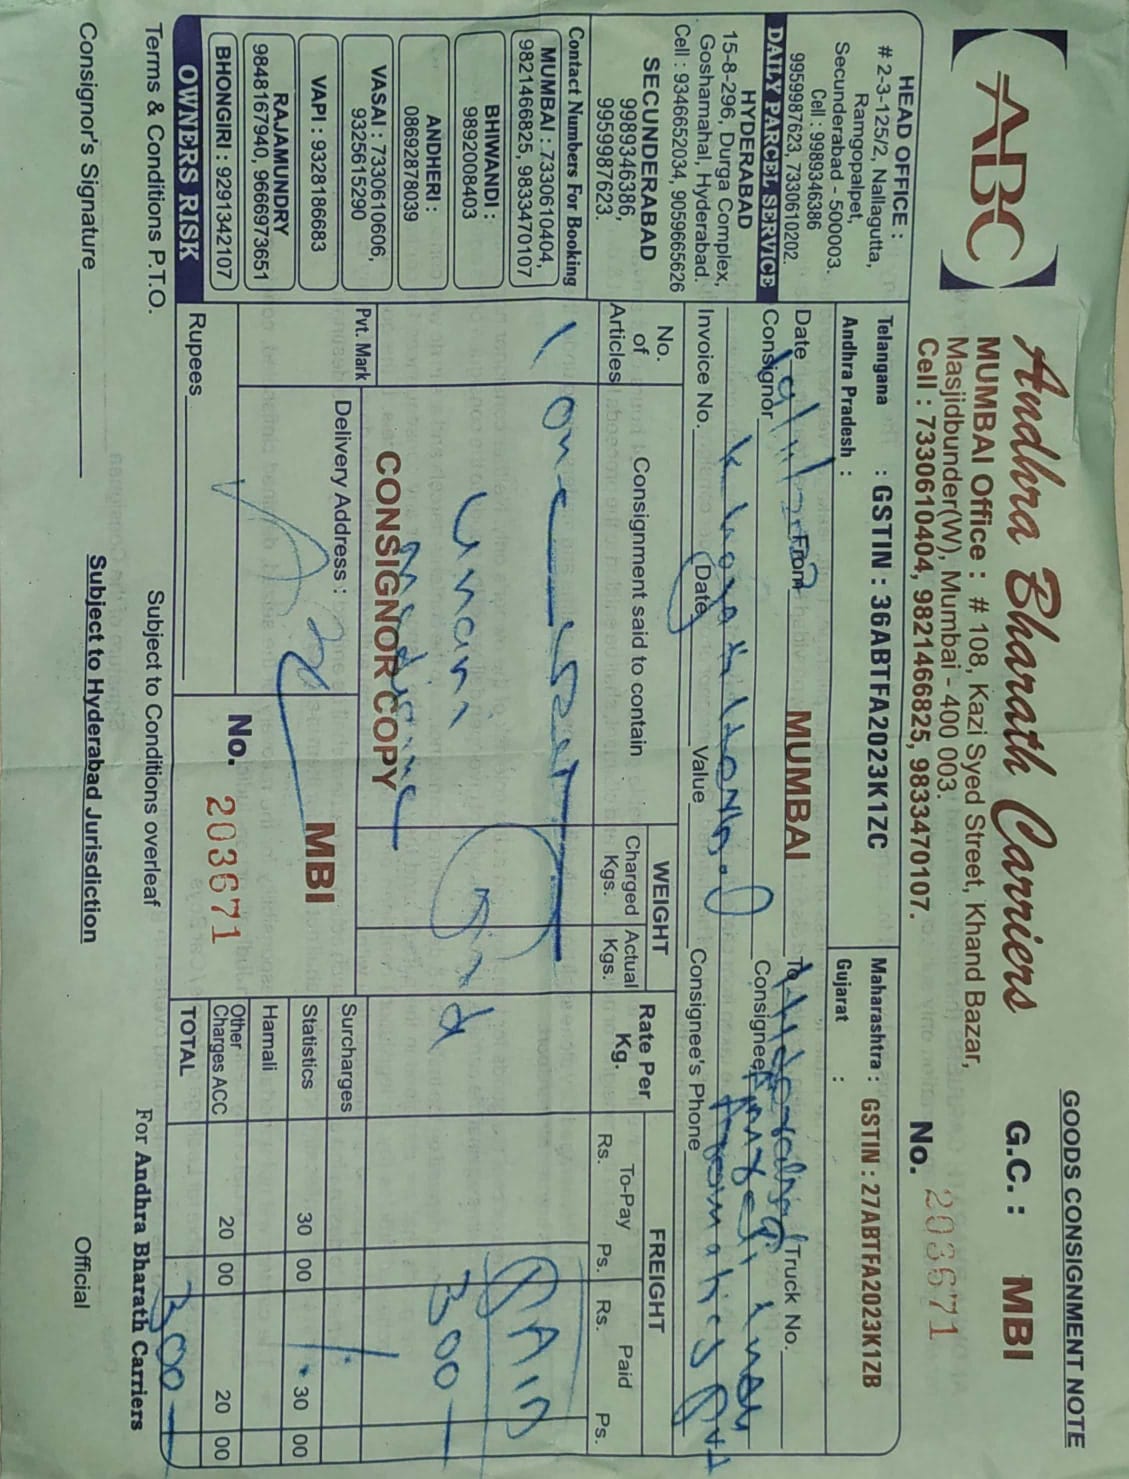 GOODS CONSIGNMENT NOTE
ABC
Andhra Bharath Carriers
G.C. : MBI
MUMBAI Office : # 108, Kazi Syed Street, Khand Bazar,
Masjidbunder(W), Mumbai - 400 003.
Cell : 7330610404, 9821466825, 9833470107.
No. 203671
HEAD OFFICE :
# 2-3-125/2, Nallagutta,
Ramgopalpet,
Secunderabad - 500003.
Cell : 9989346386
9959987623, 7330610202.
DAILY PARCEL SERVICE
HYDERABAD
15-8-296, Durga Complex,
Goshamahal, Hyderabad.
Cell : 9346652034, 9059665626
SECUNDERABAD
9989346386,
9959987623.
Contact Numbers For Booking
MUMBAI : 7330610404,
9821466825, 9833470107
BHIWANDI :
9892008403
ANDHERI :
08692878039
VASAI : 7330610606,
9325615290
VAPI : 9328186683
RAJAMUNDRY
9848167940, 9666973651
BHONGIRI : 9291342107
OWNERS RISK
Telangana : GSTIN : 36ABTFA2023K1ZC
Andhra Pradesh :
Maharashtra : GSTIN : 27ABTFA2023K1ZB
Gujarat :
Date From MUMBAI To Hyderabad Truck No.
Consignor Consignee
Invoice No. Date Value Consignee's Phone
No. of Articles
Consignment said to contain
WEIGHT
Charged Kgs.
Actual Kgs.
Rate Per Kg.
FREIGHT
To-Pay
Rs. Ps.
Paid
Rs. Ps.
1 one
PAID
Human
300
Medicine
CONSIGNOR COPY
Pvt. Mark
Delivery Address :
MBI
Surcharges
Statistics 30 00 30 00
Hamali
Other Charges ACC 20 00 20 00
TOTAL 300
Rupees
No. 203671
Terms & Conditions P.T.O.
Subject to Conditions overleaf
For Andhra Bharath Carriers
Consignor's Signature
Subject to Hyderabad Jurisdiction
Official